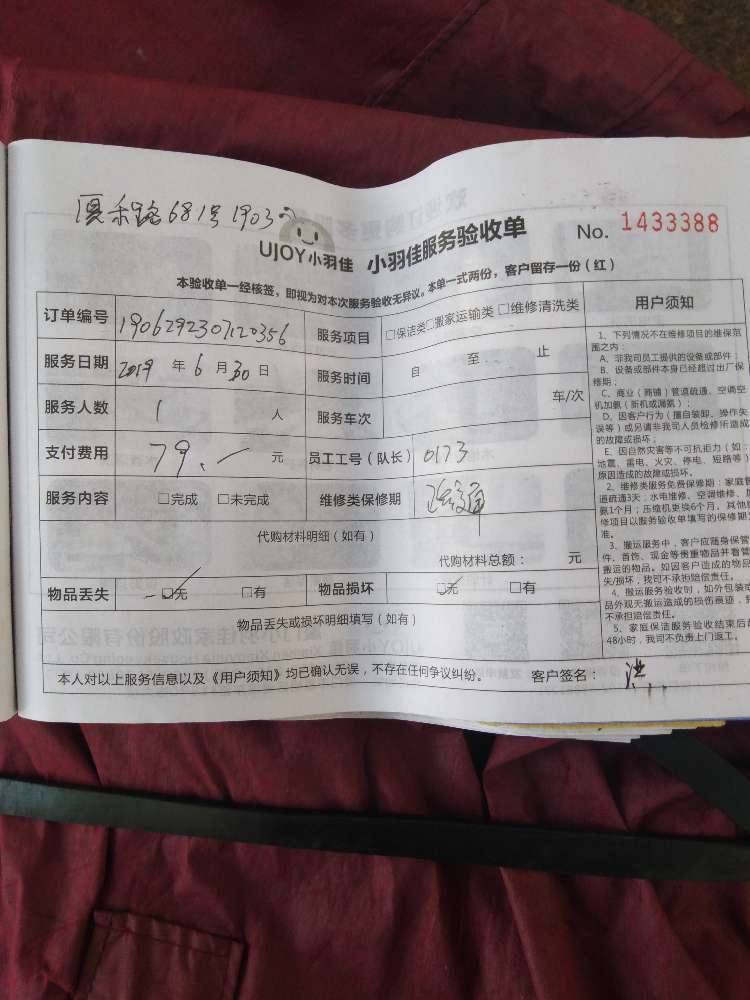 厦禾路681号1903
UJOY小羽佳 小羽佳服务验收单 No. 1433388
本验收单一经核签，即视为对本次服务验收无异议。本单一式两份，客户留存一份（红）
订单编号 1906292307120356 服务项目 □保洁类□搬家运输类 □维修清洗类 用户须知
服务日期 2019 年 6 月 30 日 服务时间 自 至 止
服务人数 1 人 服务车次 车/次
支付费用 79. 元 员工工号（队长） 0173
服务内容 □完成 □未完成 维修类保修期 疏通
代购材料明细（如有）
代购材料总额： 元
物品丢失 □无 □有 物品损坏 □无 □有
物品丢失或损坏明细填写（如有）
本人对以上服务信息以及《用户须知》均已确认无误，不存在任何争议纠纷。 客户签名： 洪
1、下列情况不在维修项目的维保范
围之内：
A、非我司员工提供的设备或部件；
B、设备或部件本身已经超过出厂保
修期；
C、商业（商铺）管道疏通、空调空
机加氨（新机或漏氨）；
D、因客户行为（擅自装卸、操作失
误等）或另请非我司人员检修所造成
的故障或损坏；
E、因自然灾害等不可抗拒力（如：
地震、雷电、火灾、停电、短路等）
原因造成的故障或损坏。
2、维修类服务免费保修期：家庭管
道疏通3天；水电维修、空调维修、
氨1个月；压缩机更换6个月，其他
修项目以服务验收单填写的保修期
准。
3、搬运服务中，客户应随身保管
件、首饰、现金等贵重物品并看管
搬运的物品。如因客户造成的物品
失/损坏，我司不承担赔偿责任。
4、搬运服务验收时，如外包装或
品外观无搬运造成的损伤痕迹，
不承担赔偿责任。
5、家庭保洁服务验收结束后
48小时，我司不负责上门返工。